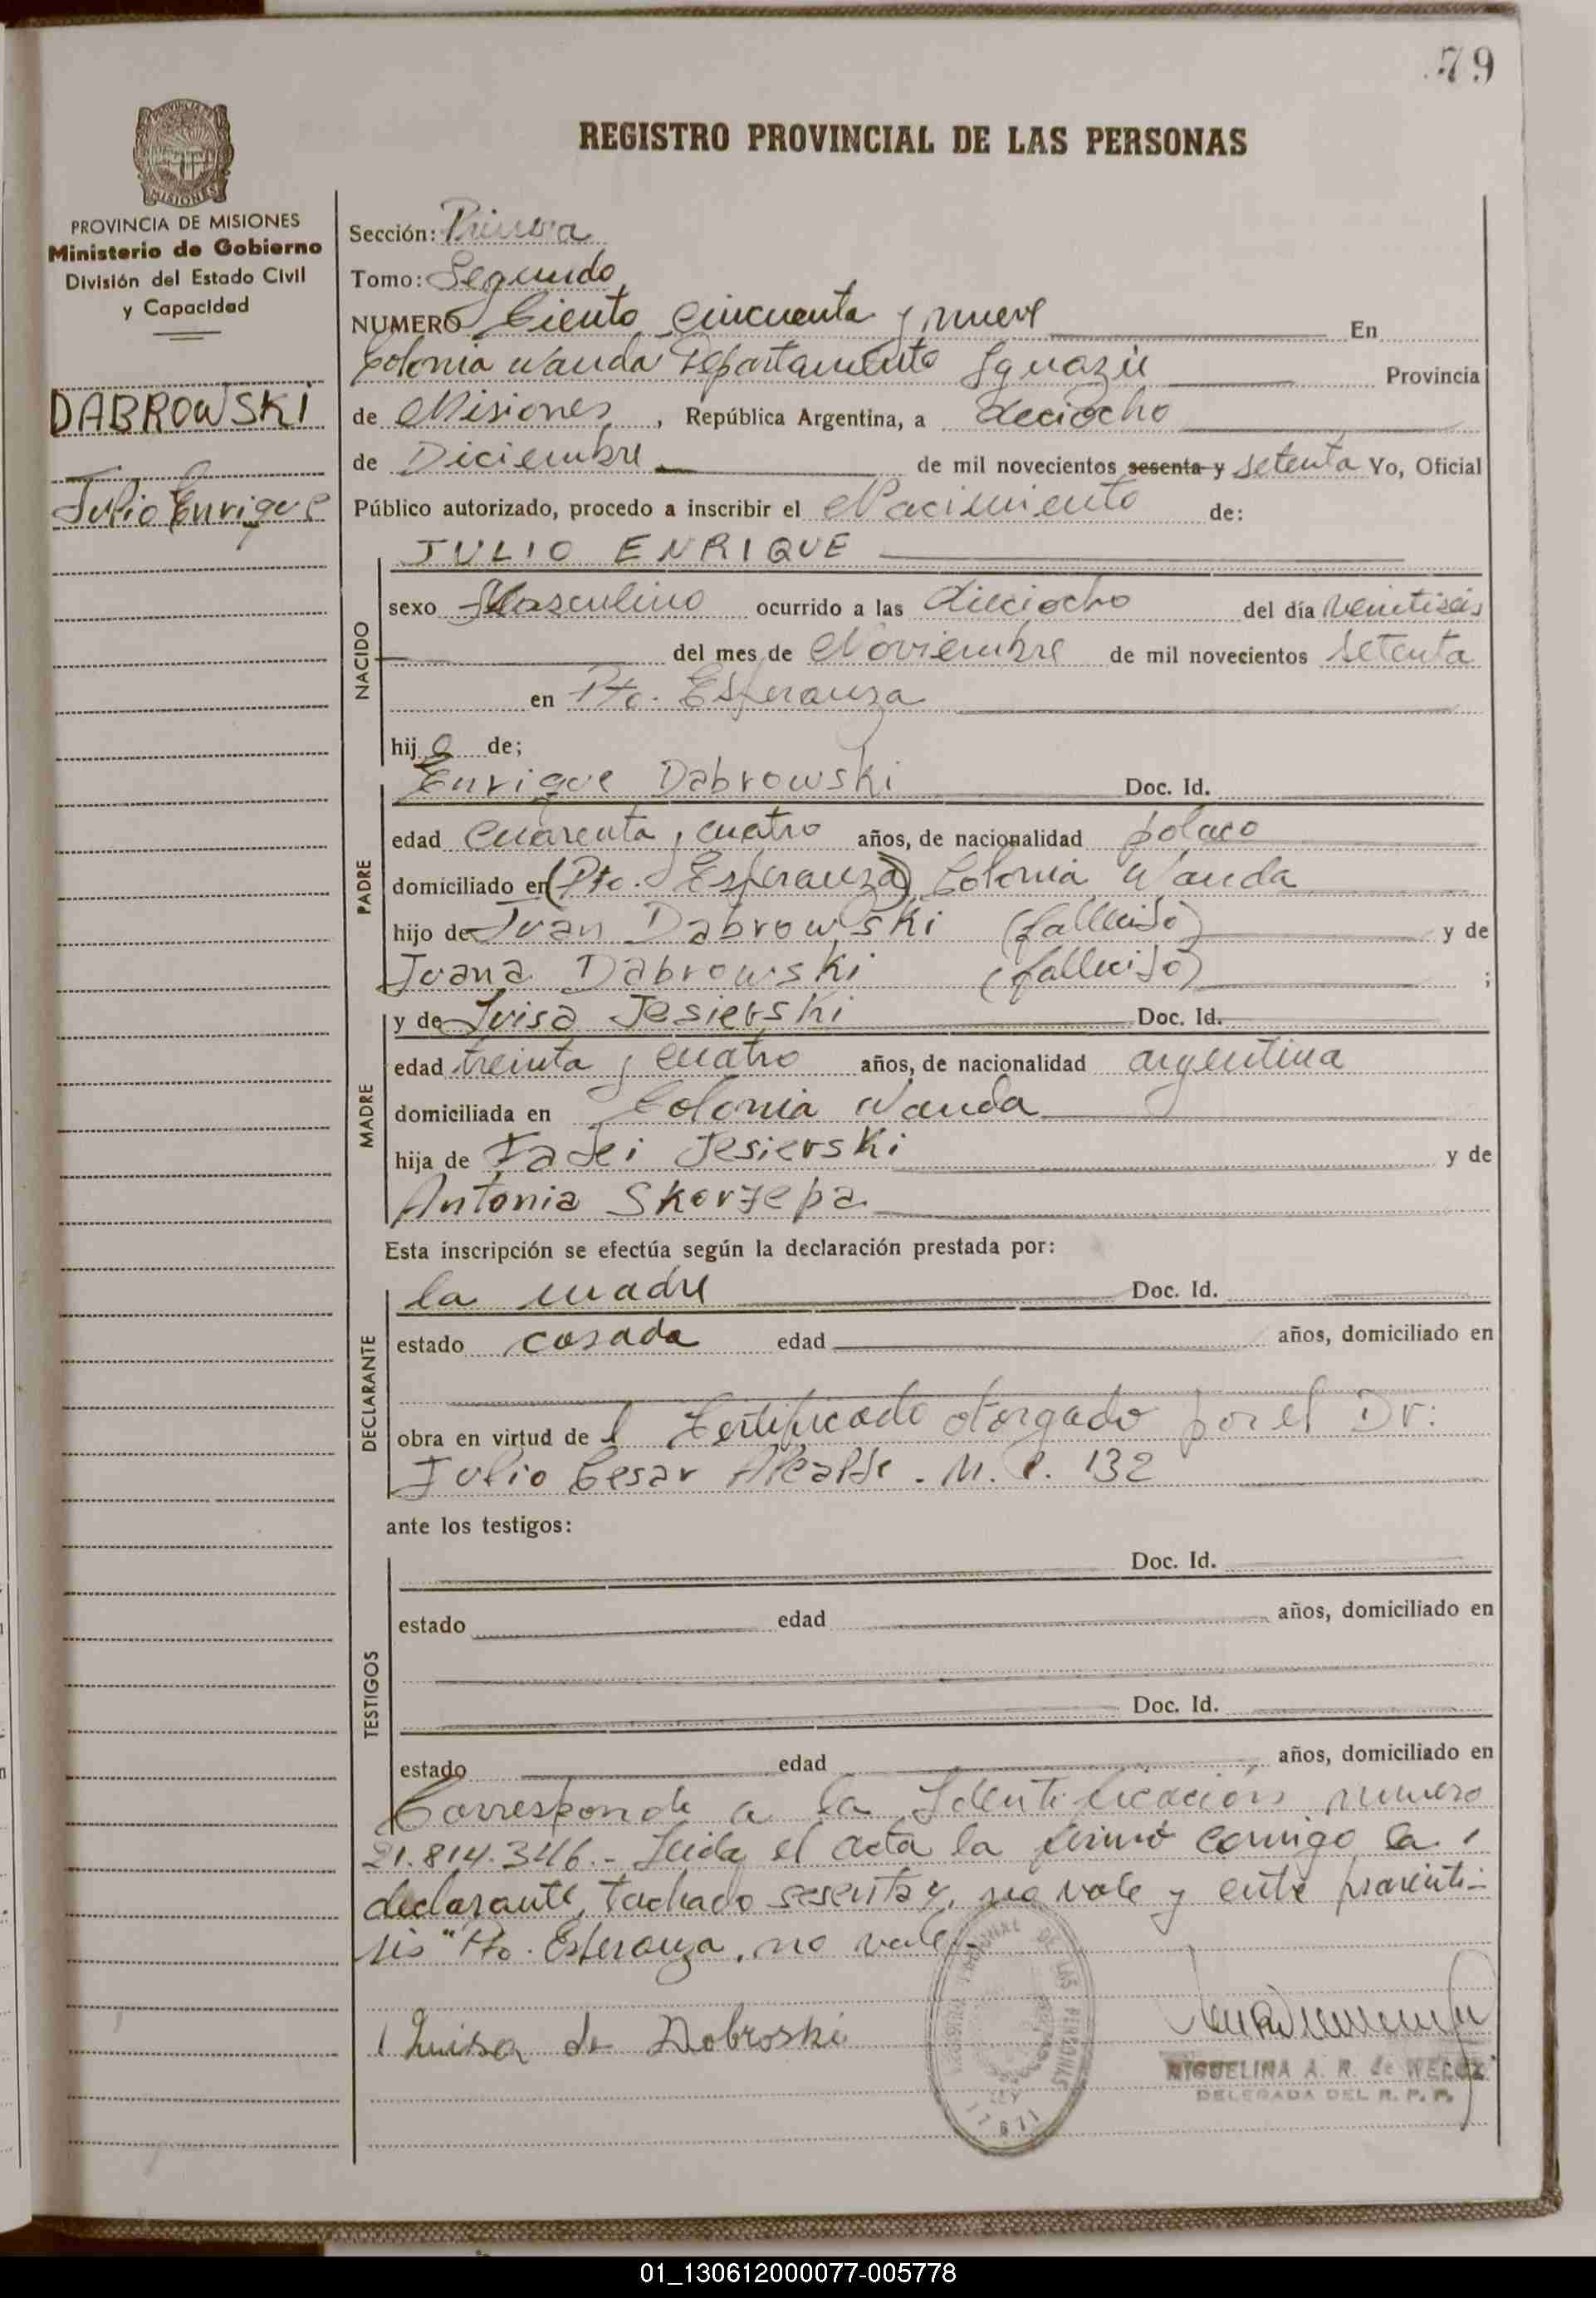 79
REGISTRO PROVINCIAL DE LAS PERSONAS
MISIONES
PROVINCIA DE MISIONES
Ministerio de Gobierno
División del Estado Civil
y Capacidad
DABROWSKI
Julio Enrique
Sección: Primera
Tomo: Segundo
NUMERO Ciento cincuenta y nueve En
Colonia Wanda Departamento Iguazú Provincia
de Misiones, República Argentina, a dieciocho
de Diciembre de mil novecientos sesenta y setenta Yo, Oficial
Público autorizado, procedo a inscribir el Nacimiento de:
JULIO ENRIQUE
NACIDO
sexo Masculino ocurrido a las dieciocho del día veintiseis
del mes de Noviembre de mil novecientos setenta
en Pto. Esperanza
hijo de;
Enrique Dabrowski Doc. Id.
PADRE
edad cuarenta y cuatro años, de nacionalidad polaco
domiciliado en (Pto. Esperanza) Colonia Wanda
hijo de Juan Dabrowski (fallecido) y de
Juana Dabrowski (fallecido) ;
y de Luisa Jesierski Doc. Id.
MADRE
edad treinta y cuatro años, de nacionalidad argentina
domiciliada en Colonia Wanda
hija de Tadei Jesierski y de
Antonia Skorzepa
Esta inscripción se efectúa según la declaración prestada por:
la madre Doc. Id.
DECLARANTE
estado casada edad años, domiciliado en
obra en virtud del Certificado otorgado por el Dr:
Julio Cesar M. P. 132
ante los testigos:
TESTIGOS
Doc. Id.
estado edad años, domiciliado en
Doc. Id.
estado edad años, domiciliado en
Corresponde a la Identificación numero
21.814.346.- Leida el acta la firmó conmigo la
declarante, tachado sesenta y, no vale y entre parenti-
sis "Pto. Esperanza, no vale.-
Luisa de Dobroski
REGISTRO PROVINCIAL DE LAS PERSONAS
LEY
17671
MIGUELINA A. R. de
DELEGADA DEL R. P. P.
01_130612000077-005778